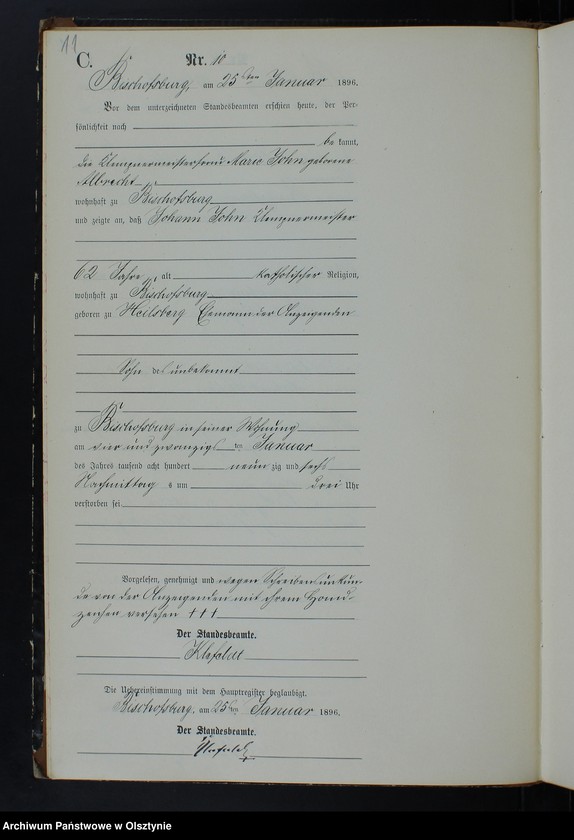 11
C.
Nr. 10
Bischofsburg, am 25ten Januar 1896.
Vor dem unterzeichneten Standesbeamten erschien heute, der Per-
sönlichkeit nach
be kannt,
die Klempnermeisterfrau Marie John geborene
Albrecht
wohnhaft zu Bischofsburg
und zeigte an, daß Johann John Klempnermeister
62 Jahre alt katholischer Religion,
wohnhaft zu Bischofsburg
geboren zu Heilsberg Ehemann der Anzeigenden
Sohn des unbekannt
zu Bischofsburg in seiner Wohnung
am vier und zwanzigsten Januar
des Jahres tausend acht hundert neun zig und sechs
Nachmittag s um drei Uhr
verstorben sei
Vorgelesen, genehmigt und wegen Schreibensunkun-
de von der Anzeigenden mit ihrem Hand-
zeichen versehen +++
Der Standesbeamte.
Klefeldt
Die Uebereinstimmung mit dem Hauptregister beglaubigt.
Bischofsburg, am 25ten Januar 1896.
Der Standesbeamte.
Klefeldt
Archiwum Państwowe w Olsztynie